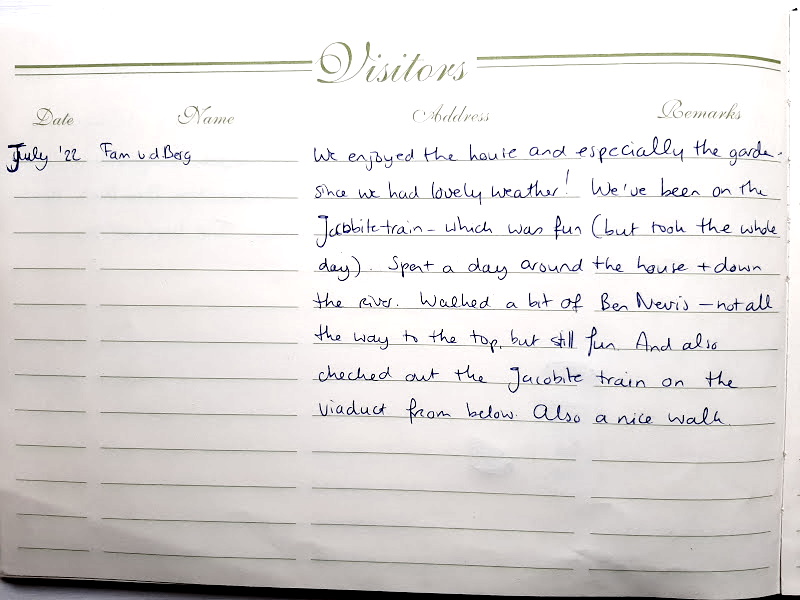 Visitors
Date Name Address Remarks
July '22 Fam vd Berg We enjoyed the house and especially the garden
since we had lovely weather! We've been on the
Jacobite train - which was fun (but took the whole
day). Spent a day around the house + down
the river. Walked a bit of Ben Nevis - not all
the way to the top, but still fun. And also
checked out the Jacobite train on the
viaduct from below. Also a nice walk.